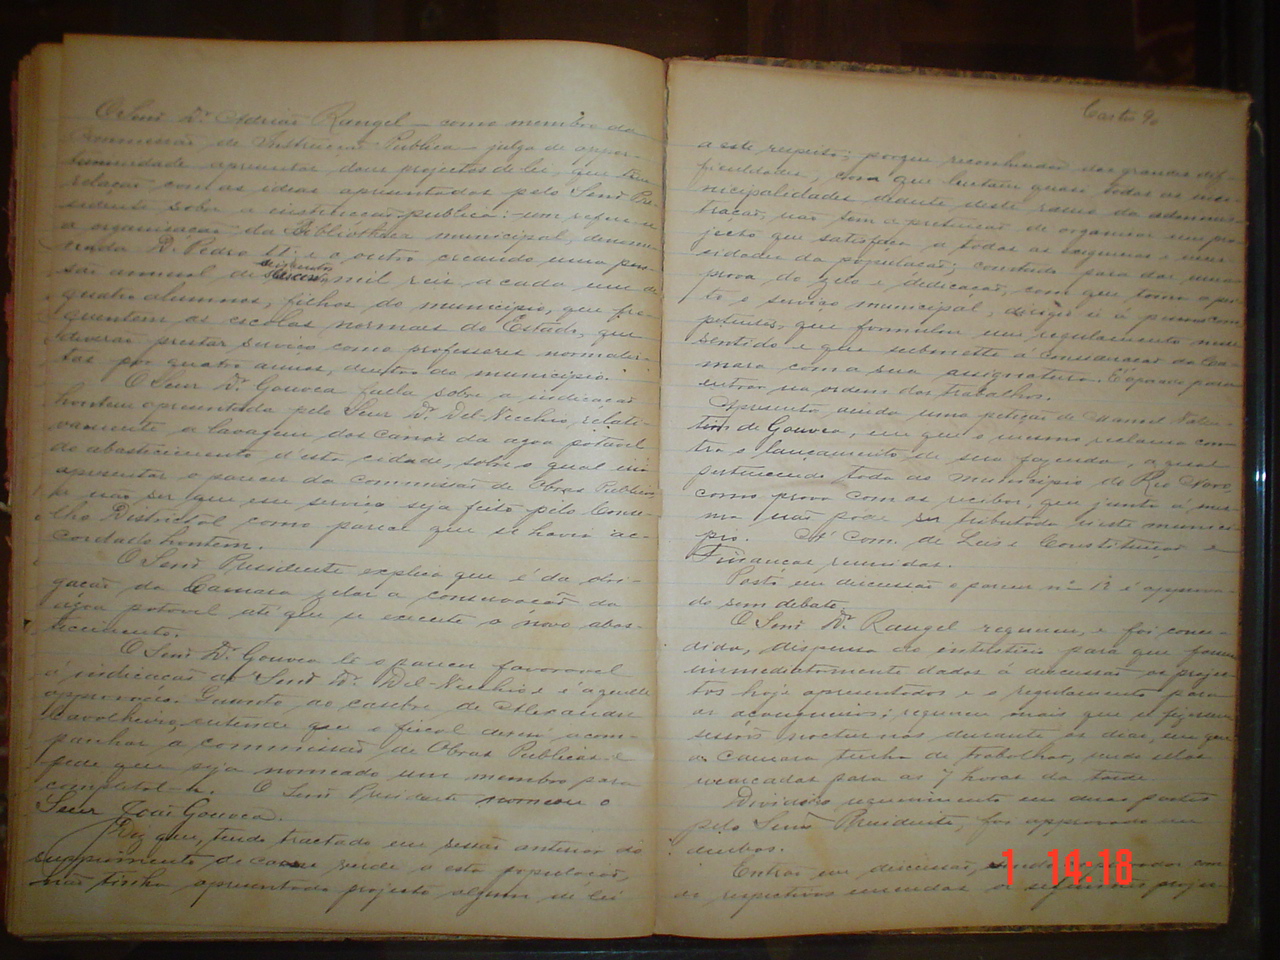 O Senr Dr. Adrião Rangel – como membro da
Commissão de Instrucção Publica – julga de oppor-
tunidade apresentar dous projectos de lei, que têm
relação com as ideas apresentadas pelo Senr Pre-
sidente sobre a instrucção publica: um refere-se
a organisação da Bibliotheca municipal, denomi-
nada D. Pedro II; e o outro creando uma pen-
são annual de mil reis a cada um de
quatro alumnos, filhos do municipio, que fre-
quentem as escolas normaes do Estado, que
deverão prestar serviço como professores normalis-
tas por quatro annos, dentro do municipio.
O Senr Dr. Gouvea falla sobre a indicação
hontem apresentada pelo Senr Dr. Del-Vecchio, relati-
vamente a lavagem dos canos da agoa potavel
do abastecimento d'esta cidade, sobre o qual vai
apresentar o parecer da commissão de Obras Publicas
a não ser que esse serviço seja feito pelo Conse-
lho Districtal como parece que se havia ac-
cordado hontem.
O Senr Presidente explica que é da obri-
gação da Camara zelar a conservação da
agoa potavel até que se execute o novo abas-
tecimento.
O Senr Dr. Gouvea lê o parecer favoravel
á indicação do Senr Dr. Del-Vecchio e é aquelle
approvado. Quanto ao casebre de Alexandre
Cavalheiro, entende que o fiscal deve acom-
panhar a commissão de Obras Publicas e
pede que seja nomeado um membro para
completal-a. O Senr Presidente nomeou o
Senr João Gouvea.
Diz que, tendo tractado em sessão anterior do
supprimento de carne verde a esta população,
não tinha apresentado projecto algum de lei
Castro 90
a este respeito; porque reconhecendo das grandes dif-
ficuldades, com que luctam quasi todas as mu-
nicipalidades deante deste ramo da adminis-
tração, não tem a pretenção de organisar um pro-
jecto que satisfaça a todas as exigencias e neces-
sidades da população; comtudo para dar uma
prova do zelo e dedicação, com que toma a pei-
to o serviço municipal, dirigio-se á pessoa com-
petente, que formulou um regulamento nesse
sentido e que submette á consideração da Ca-
mara com a sua assignatura. É apoiado para
entrar na ordem dos trabalhos.
Apresenta ainda uma petição de Manoel Valen-
tim de Gouvea, em que o mesmo reclama con-
tra o lançamento de sua fazenda, a qual
pertencendo toda ao municipio do Rio Novo,
como prova com os recibos, que junta á mes-
ma, não póde ser tributada neste munici-
pio. Á Com. de Leis e Constituição e
Finanças reunidas.
Posto em discussão o parecer nº 12 é approva-
do sem debate.
O Senr Dr. Rangel requereu, e foi conce-
dida, dispensa do intersticio para que fossem
immediatamente dados á discussão os projec-
tos hoje apresentados e o regulamento para
os açougueiros; requereu mais que se fizessem
sessões nocturnas durante os dias, em que
a Camara tenha de trabalhar, sendo ellas
marcadas para as 7 horas da tarde.
Dividido requerimento em duas partes
pelo Senr Presidente, foi approvado em
ambas.
Entrão em discussão, com
as respectivas emendas os seguintes projec-
1 14:18